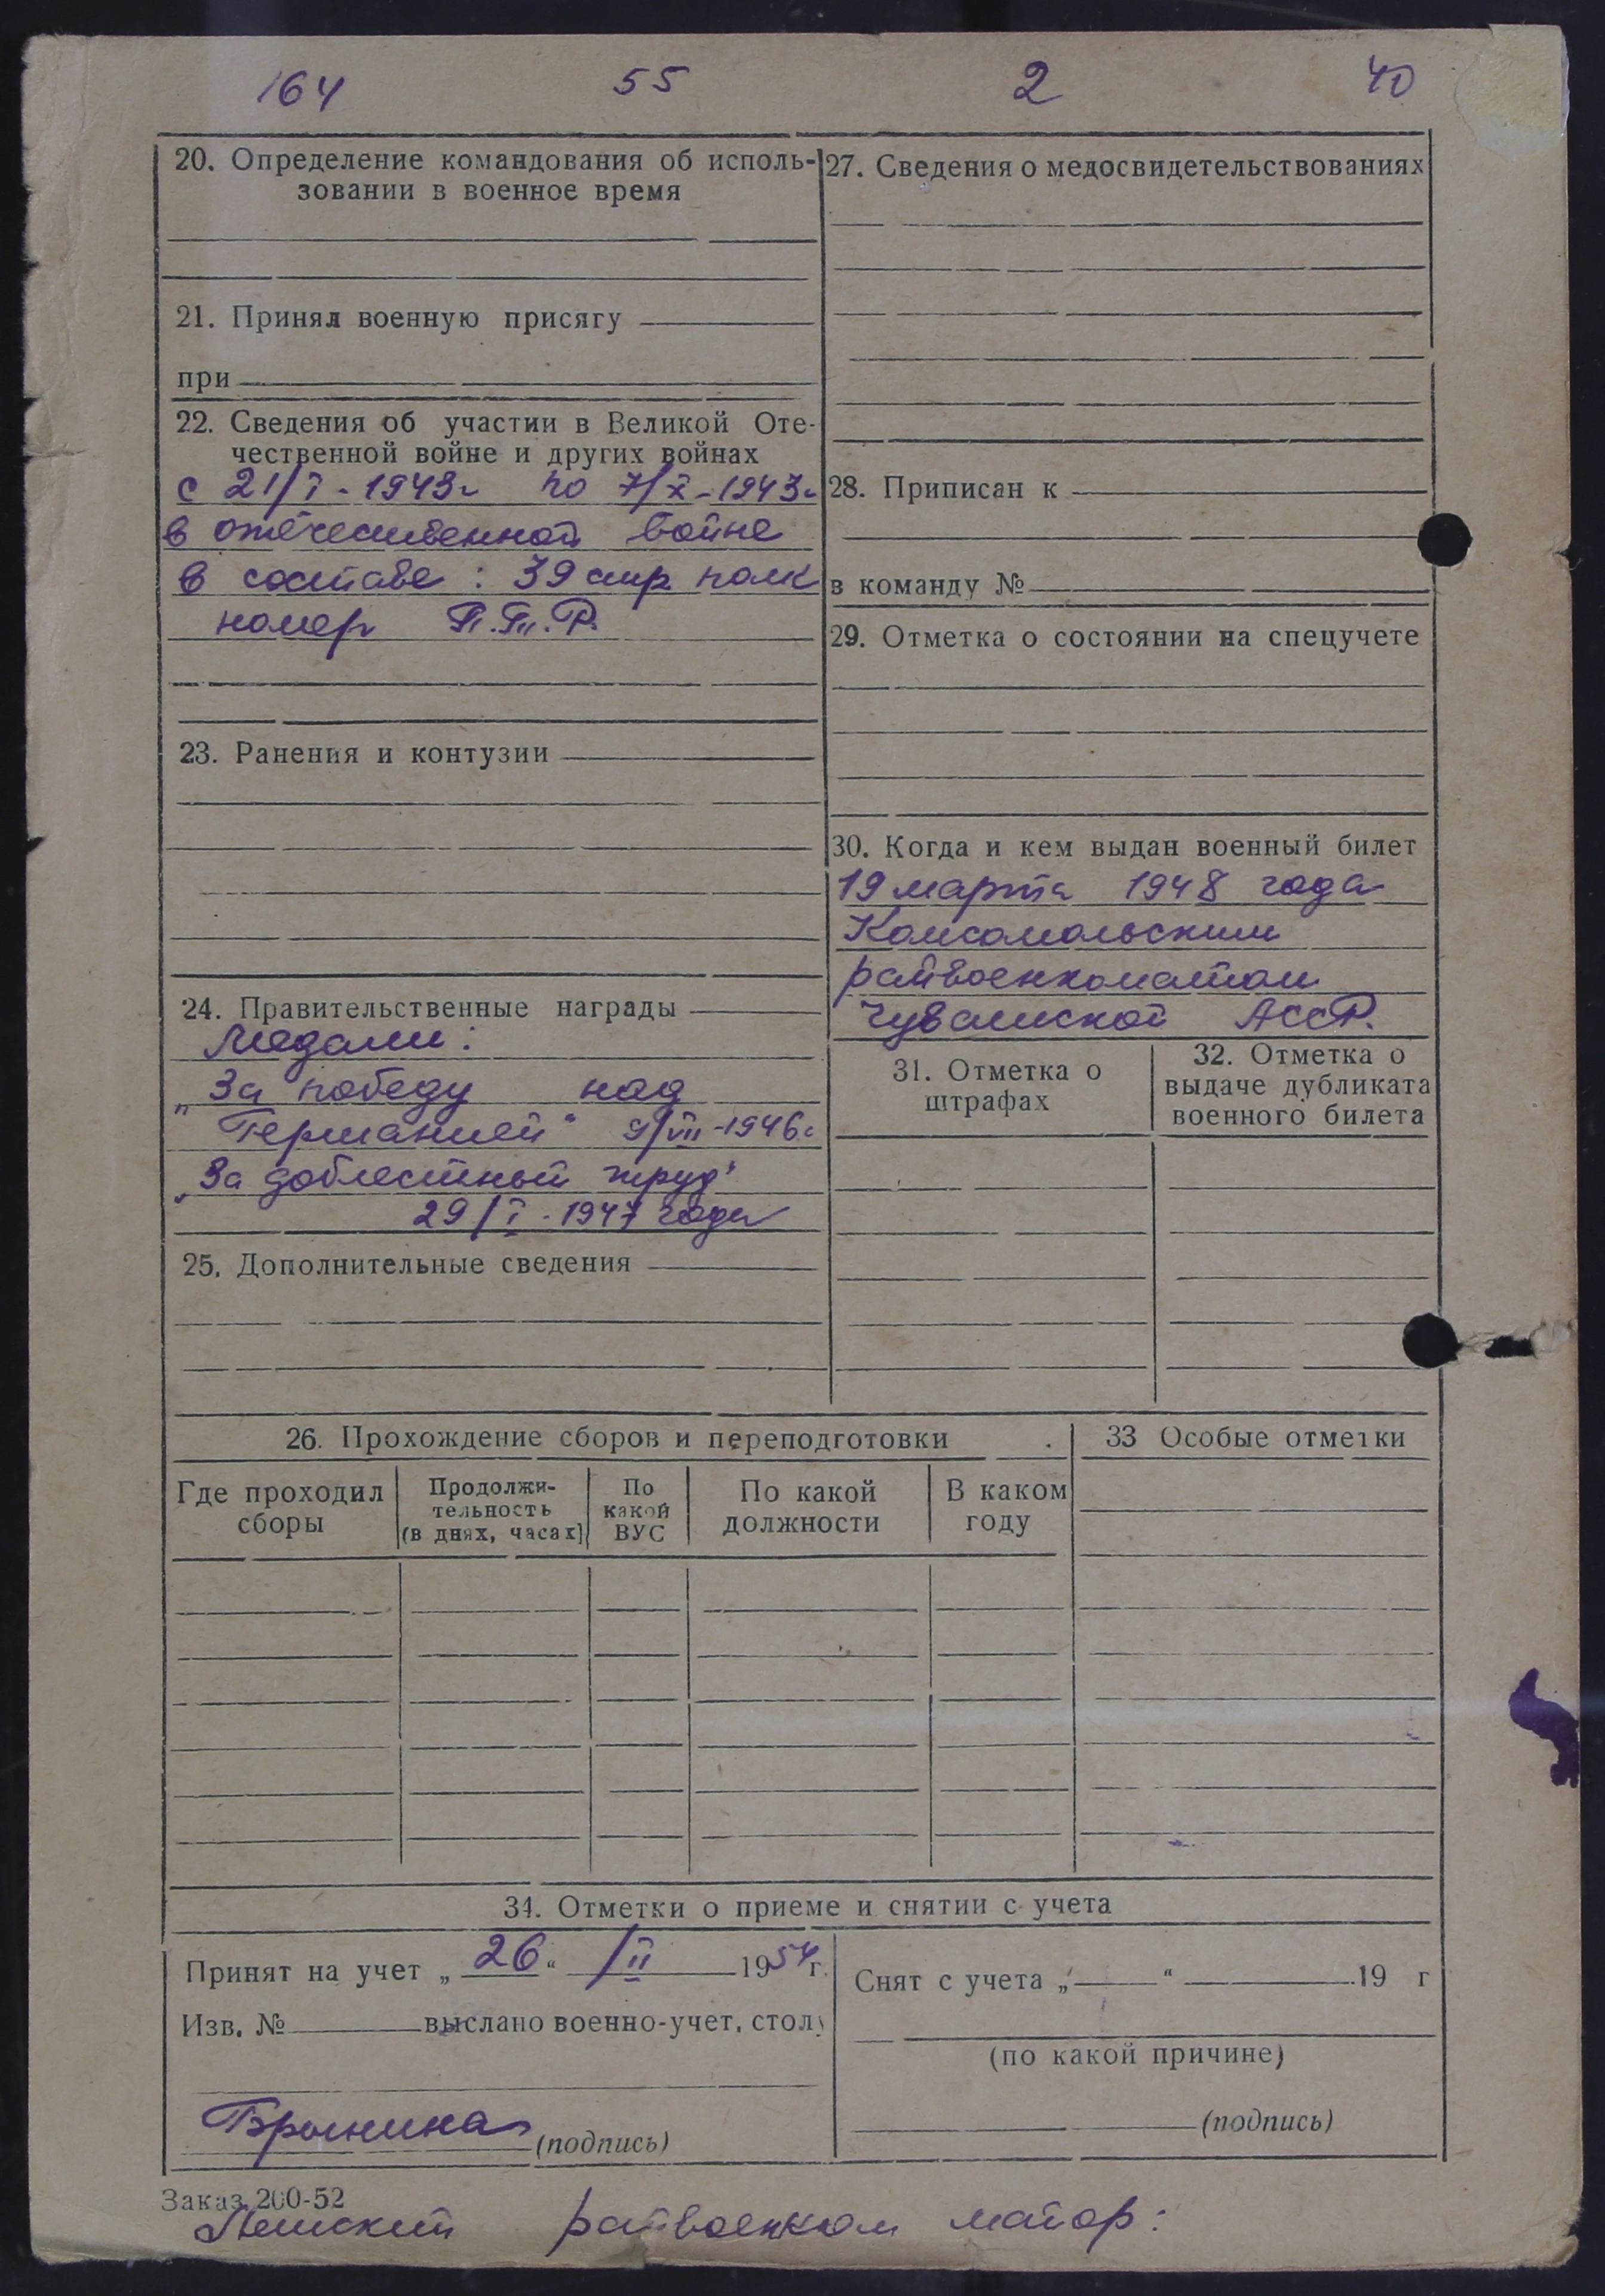 164 55 2 40
20. Определение командования об исполь-
зовании в военное время
21. Принял военную присягу
при
22. Сведения об участии в Великой Оте-
чественной войне и других войнах
с 21/I - 1943г по 7/X - 1943г
в отечественной войне
в составе : 39 стр полк
номер П.П.Р.
23. Ранения и контузии
24. Правительственные награды
Медали:
„За победу над
Германией“ 9/VII-1946г
„За доблестный труд“
29/I - 1947 года
25. Дополнительные сведения
27. Сведения о медосвидетельствованиях
28. Приписан к
в команду №
29. Отметка о состоянии на спецучете
30. Когда и кем выдан военный билет
19 марта 1948 года
Комсомольским
райвоенкоматом
Чувашской АССР.
31. Отметка о
штрафах
32. Отметка о
выдаче дубликата
военного билета
26. Прохождение сборов и переподготовки
Где проходил
сборы
Продолжи-
тельность
(в днях, часах)
По
какой
ВУС
По какой
должности
В каком
году
33 Особые отметки
34. Отметки о приеме и снятии с учета
Принят на учет „26“ /II 1954 г.
Изв. № выслано военно-учет. столу
(подпись)
Снят с учета „ “ 19 г
(по какой причине)
(подпись)
Заказ 200-52
райвоенком майор: